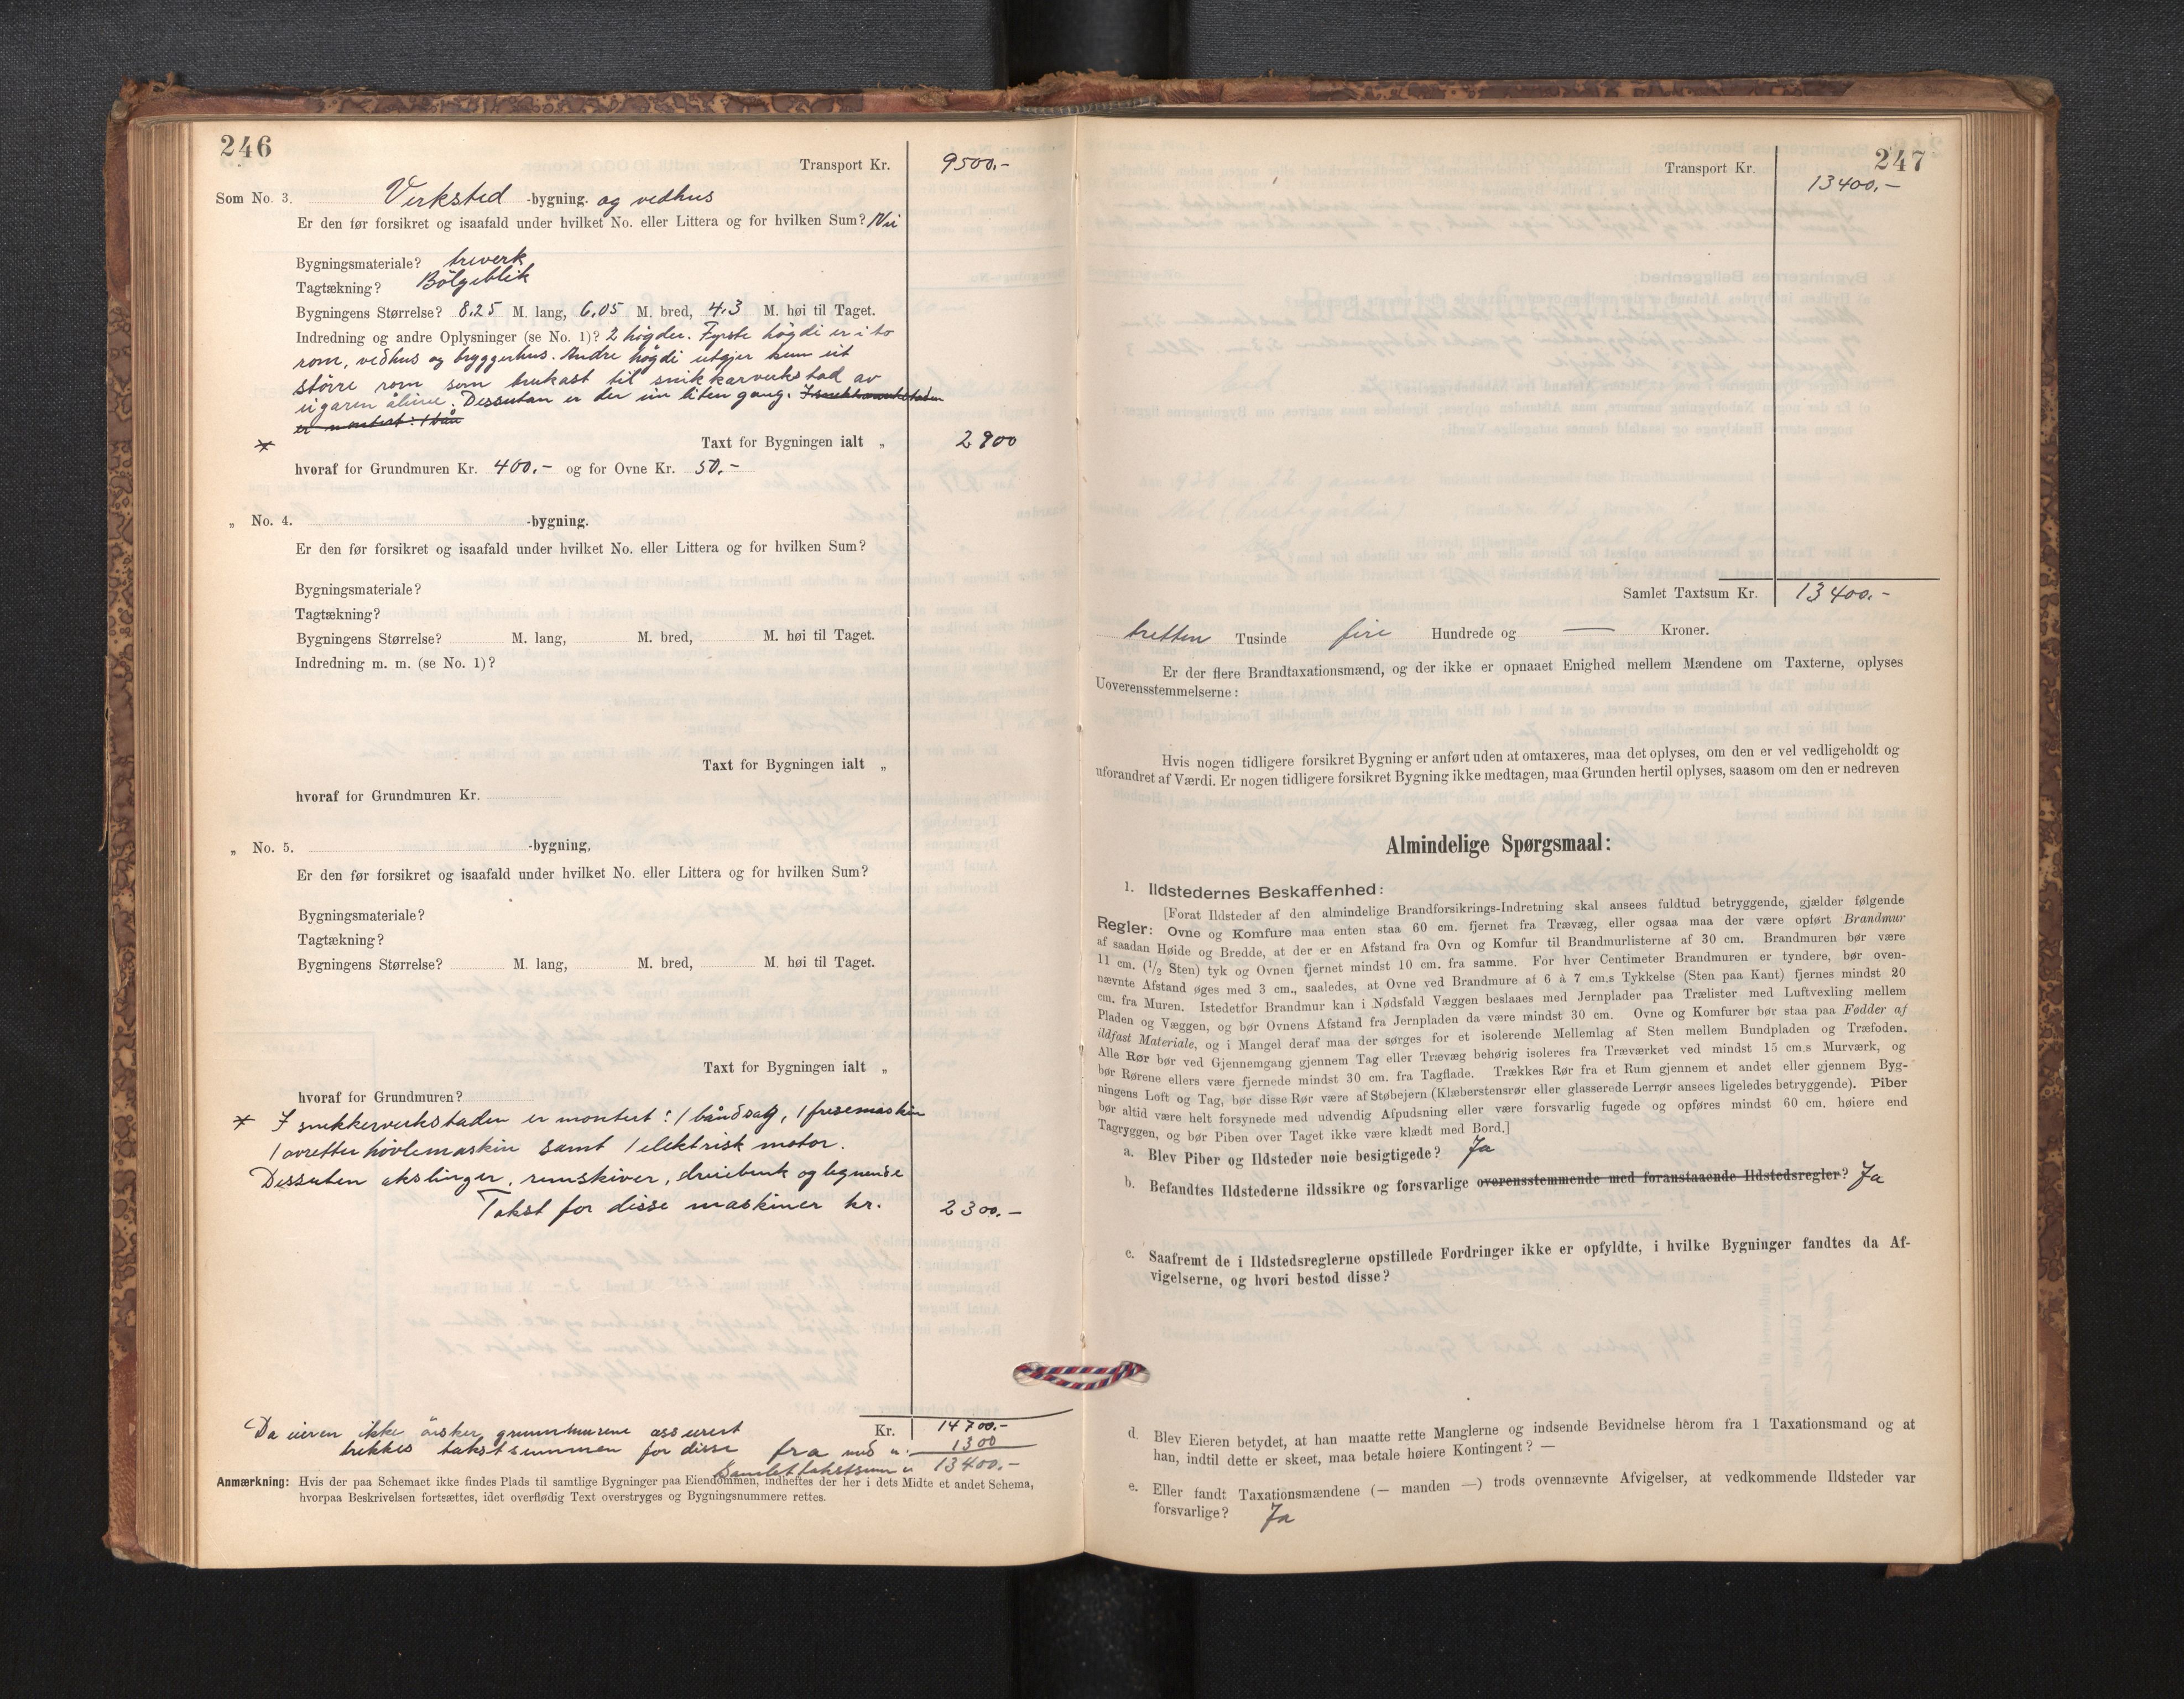 246
Transport Kr. 9500.-
Som No. 3. Verksted -bygning. og vedhus
Er den før forsikret og isaafald under hvilket No. eller Littera og for hvilken Sum? Nei
Bygningsmateriale? treverk
Tagtækning? Bölgeblik
Bygningens Størrelse? 8.25 M. lang, 6,05 M. bred, 4,3 M. høi til Taget.
Indredning og andre Oplysninger (se No. 1)? 2 högder. Fyrste högdi er i to
rom, vedhus og bryggerhus. Andre högdi utgjer kun eit
större rom som brukast til snikkarverkstad av
eigaren åleine. Dessutan er der ein liten gang. I snekkerverkstaden
er montert: 1 bån
* Taxt for Bygningen ialt „ 2900
hvoraf for Grundmuren Kr. 400.- og for Ovne Kr. 50.-
„ No. 4. -bygning.
Er den før forsikret og isaafald under hvilket No. eller Littera og for hvilken Sum?
Bygningsmateriale?
Tagtækning?
Bygningens Størrelse? M. lang, M. bred, M. høi til Taget.
Indredning m. m. (se No. 1)?
Taxt for Bygningen ialt „
hvoraf for Grundmuren Kr.
„ No. 5. -bygning,
Er den før forsikret og isaafald under hvilket No. eller Littera og for hvilken Sum?
Bygningsmateriale?
Tagtækning?
Bygningens Størrelse? M. lang, M. bred, M. høi til Taget.
Taxt for Bygningen ialt „
hvoraf for Grundmuren?
* I snekkerverkstaden er montert: 1 båndsag, 1 fresemaskin
1 avretter hövlemaskin samt 1 elektrisk motor.
Dessuten akslinger, remskiver, dreiebenk og lignende
Takst for disse maskiner kr. 2300.-
Da eieren ikke önsker grunnmurene assurert Kr. 14700.-
trekkes takstsummen for disse fra med „ 1300
Samlet takstsum „ 13400.-
Anmærkning: Hvis der paa Schemaet ikke findes Plads til samtlige Bygninger paa Eiendommen, indheftes der her i dets Midte et andet Schema,
hvorpaa Beskrivelsen fortsættes, idet overflødig Text overstryges og Bygningsnummere rettes.
247
Transport Kr. 13400.-
Samlet Taxtsum Kr. 13400.-
tretten Tusinde fire Hundrede og — Kroner.
Er der flere Brandtaxationsmænd, og der ikke er opnaaet Enighed mellem Mændene om Taxterne, oplyses
Uoverensstemmelserne:
Hvis nogen tidligere forsikret Bygning er anført uden at omtaxeres, maa det oplyses, om den er vel vedligeholdt og
uforandret af Værdi. Er nogen tidligere forsikret Bygning ikke medtagen, maa Grunden hertil oplyses, saasom om den er nedreven
Almindelige Spørgsmaal:
1. Ildstedernes Beskaffenhed:
[Forat Ildsteder af den almindelige Brandforsikrings-Indretning skal ansees fuldtud betryggende, gjælder følgende
Regler: Ovne og Komfure maa enten staa 60 cm. fjernet fra Trævæg, eller ogsaa maa der være opført Brandmur
af saadan Høide og Bredde, at der er en Afstand fra Ovn og Komfur til Brandmurlisterne af 30 cm. Brandmuren bør være
11 cm. (1/2 Sten) tyk og Ovnen fjernet mindst 10 cm. fra samme. For hver Centimeter Brandmuren er tyndere, bør oven-
nævnte Afstand øges med 3 cm., saaledes, at Ovne ved Brandmure af 6 à 7 cm.s Tykkelse (Sten paa Kant) fjernes mindst 20
cm. fra Muren. Istedetfor Brandmur kan i Nødsfald Væggen beslaaes med Jernplader paa Trælister med Luftvexling mellem
Pladen og Væggen, og bør Ovnens Afstand fra Jernpladen da være mindst 30 cm. Ovne og Komfurer bør staa paa Fødder af
ildfast Materiale, og i Mangel deraf maa der sørges for et isolerende Mellemlag af Sten mellem Bundpladen og Træfoden.
Alle Rør bør ved Gjennemgang gjennem Tag eller Trævæg behørig isoleres fra Træværket ved mindst 15 cm.s Murværk, og
bør Rørene ellers være fjernede mindst 30 cm. fra Tagflade. Trækkes Rør fra et Rum gjennem et andet eller gjennem Byg-
ningens Loft og Tag, bør disse Rør være af Støbejern (Klæberstensrør eller glasserede Lerrør ansees ligeledes betryggende). Piber
bør altid være helt forsynede med udvendig Afpudsning eller være forsvarlig fugede og opføres mindst 60 cm. høiere end
Tagryggen, og bør Piben over Taget ikke være klædt med Bord.]
a. Blev Piber og Ildsteder nøie besigtigede? Ja
b. Befandtes Ildstederne ildssikre og forsvarlige overensstemmende med foranstaaende Ildstedsregler? Ja
c. Saafremt de i Ildstedsreglerne opstillede Fordringer ikke er opfyldte, i hvilke Bygninger fandtes da Af-
vigelserne, og hvori bestod disse?
d. Blev Eieren betydet, at han maatte rette Manglerne og indsende Bevidnelse herom fra 1 Taxationsmand og at
han, indtil dette er skeet, maa betale høiere Kontingent? —
e. Eller fandt Taxationsmændene (— manden —) trods ovennævnte Afvigelser, at vedkommende Ildsteder var
forsvarlige? Ja